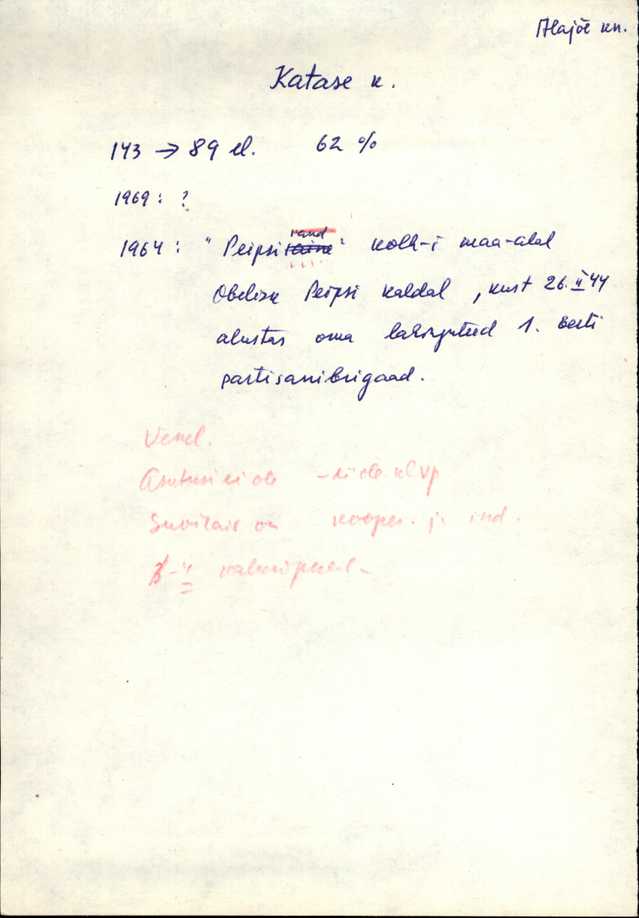 Alajõe kn.
Katase k.
143 → 89 el. 62 %
1969: ?
rand
1964: "Peipsi laine" kolh-i maa-alal
Obelisk Peipsi kaldal, kust 26. II 44
alustas oma lahinguteed 1. Eesti
partisanibrigaad.
Venel.
Asutusi ei ole - ei ole kl vp
Suvilaid on kooper. ja ind.